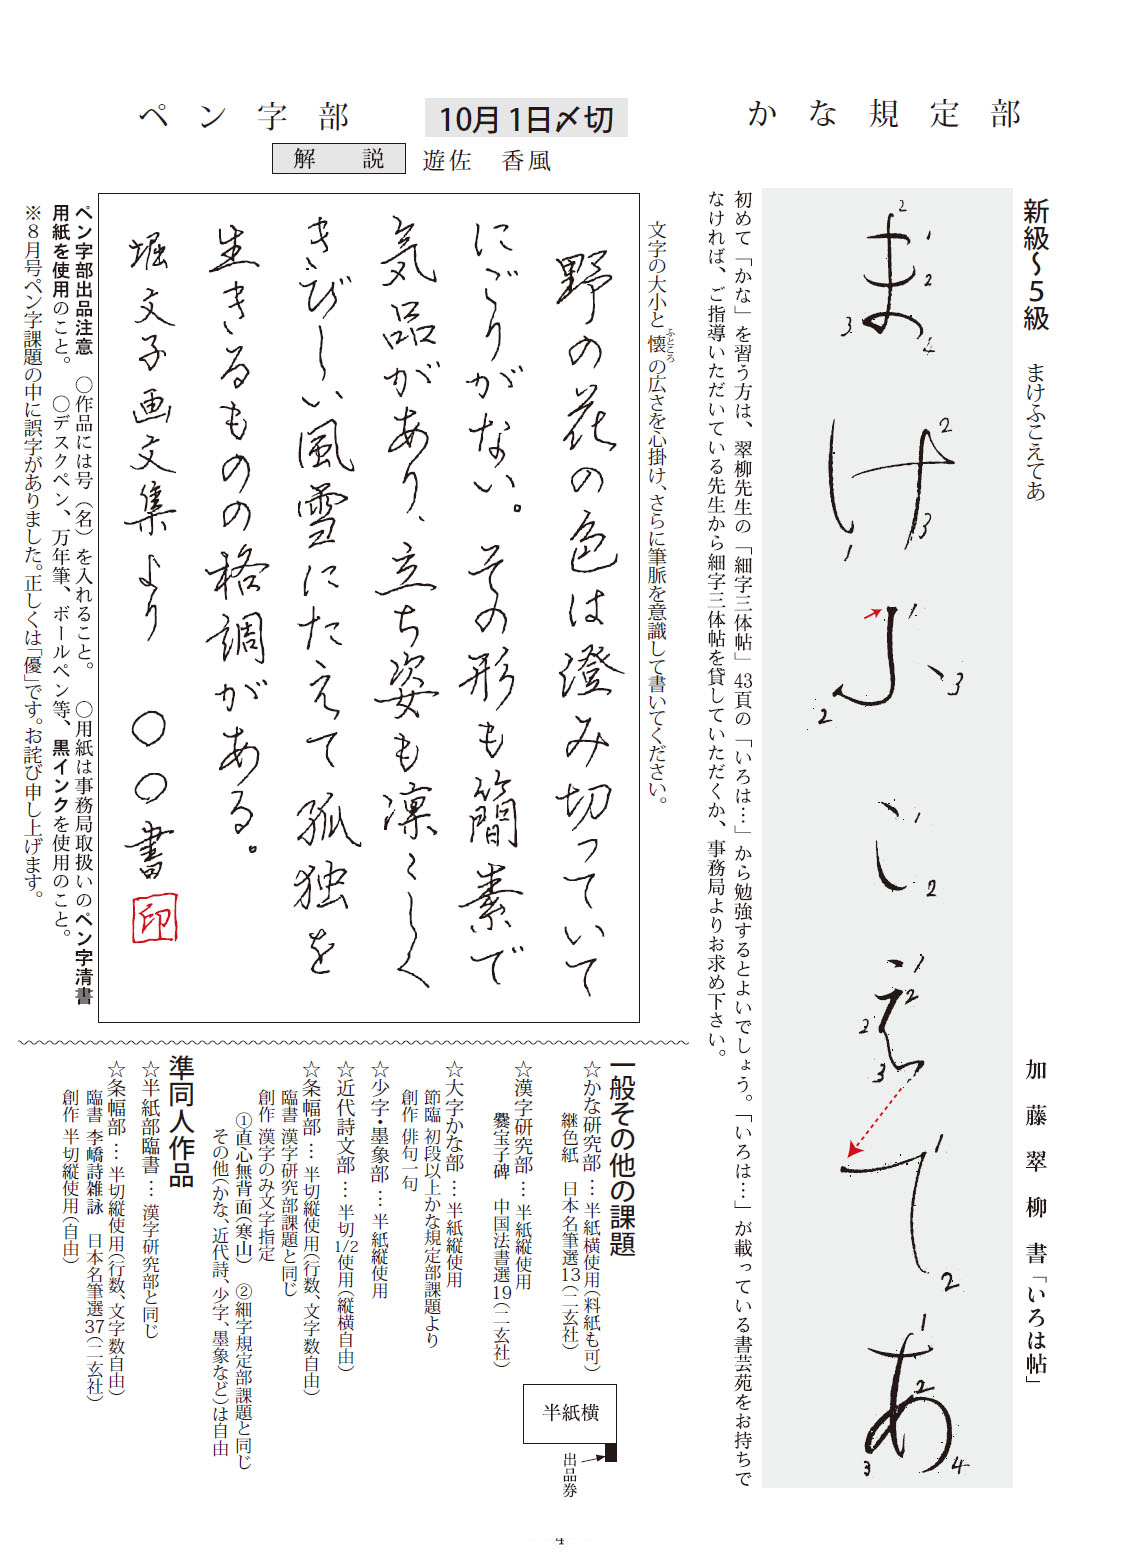 かな規定部
新級〜5級　まけふこえてあ
加藤翠柳書「いろは帖」
まけふこえてあ
初めて「かな」を習う方は、翠柳先生の「細字三体帖」43頁の「いろは…」から勉強するとよいでしょう。「いろは…」が載っている書芸苑をお持ちで
なければ、ご指導いただいている先生から細字三体帖を貸していただくか、事務局よりお求め下さい。
ペン字部
10月1日〆切
解説　遊佐　香風
文字の大小と懐の広さを心掛け、さらに筆脈を意識して書いてください。
ふところ
野の花の色は澄み切っていて
にごりがない。その形も簡素で
気品があり、立ち姿も凜々しく
きびしい風雪にたえて孤独を
生きるものの格調がある。
堀文子画文集より　○○書 印
ペン字部出品注意　○作品には号（名）を入れること。　○用紙は事務局取扱いのペン字清書
用紙を使用のこと。　○デスクペン、万年筆、ボールペン等、黒インクを使用のこと。
※8月号ペン字課題の中に誤字がありました。正しくは「優」です。お詫び申し上げます。
一般その他の課題
☆かな研究部…半紙横使用（料紙も可）
継色紙　日本名筆選13（二玄社）
半紙横
出品券
☆漢字研究部…半紙縦使用
爨宝子碑　中国法書選19（二玄社）
☆大字かな部…半紙縦使用
節臨 初段以上かな規定部課題より
創作 俳句一句
☆少字・墨象部…半紙縦使用
☆近代詩文部…半切1/2使用（縦横自由）
☆条幅部…半切縦使用（行数、文字数自由）
臨書 漢字研究部課題と同じ
創作 漢字のみ文字指定
①直心無背面（寒山）　②細字規定部課題と同じ
その他（かな、近代詩、少字、墨象など）は自由
準同人作品
☆半紙部臨書…漢字研究部と同じ
☆条幅部…半切縦使用（行数、文字数自由）
臨書 李嶠詩雑詠　日本名筆選37（二玄社）
創作 半切縦使用（自由）